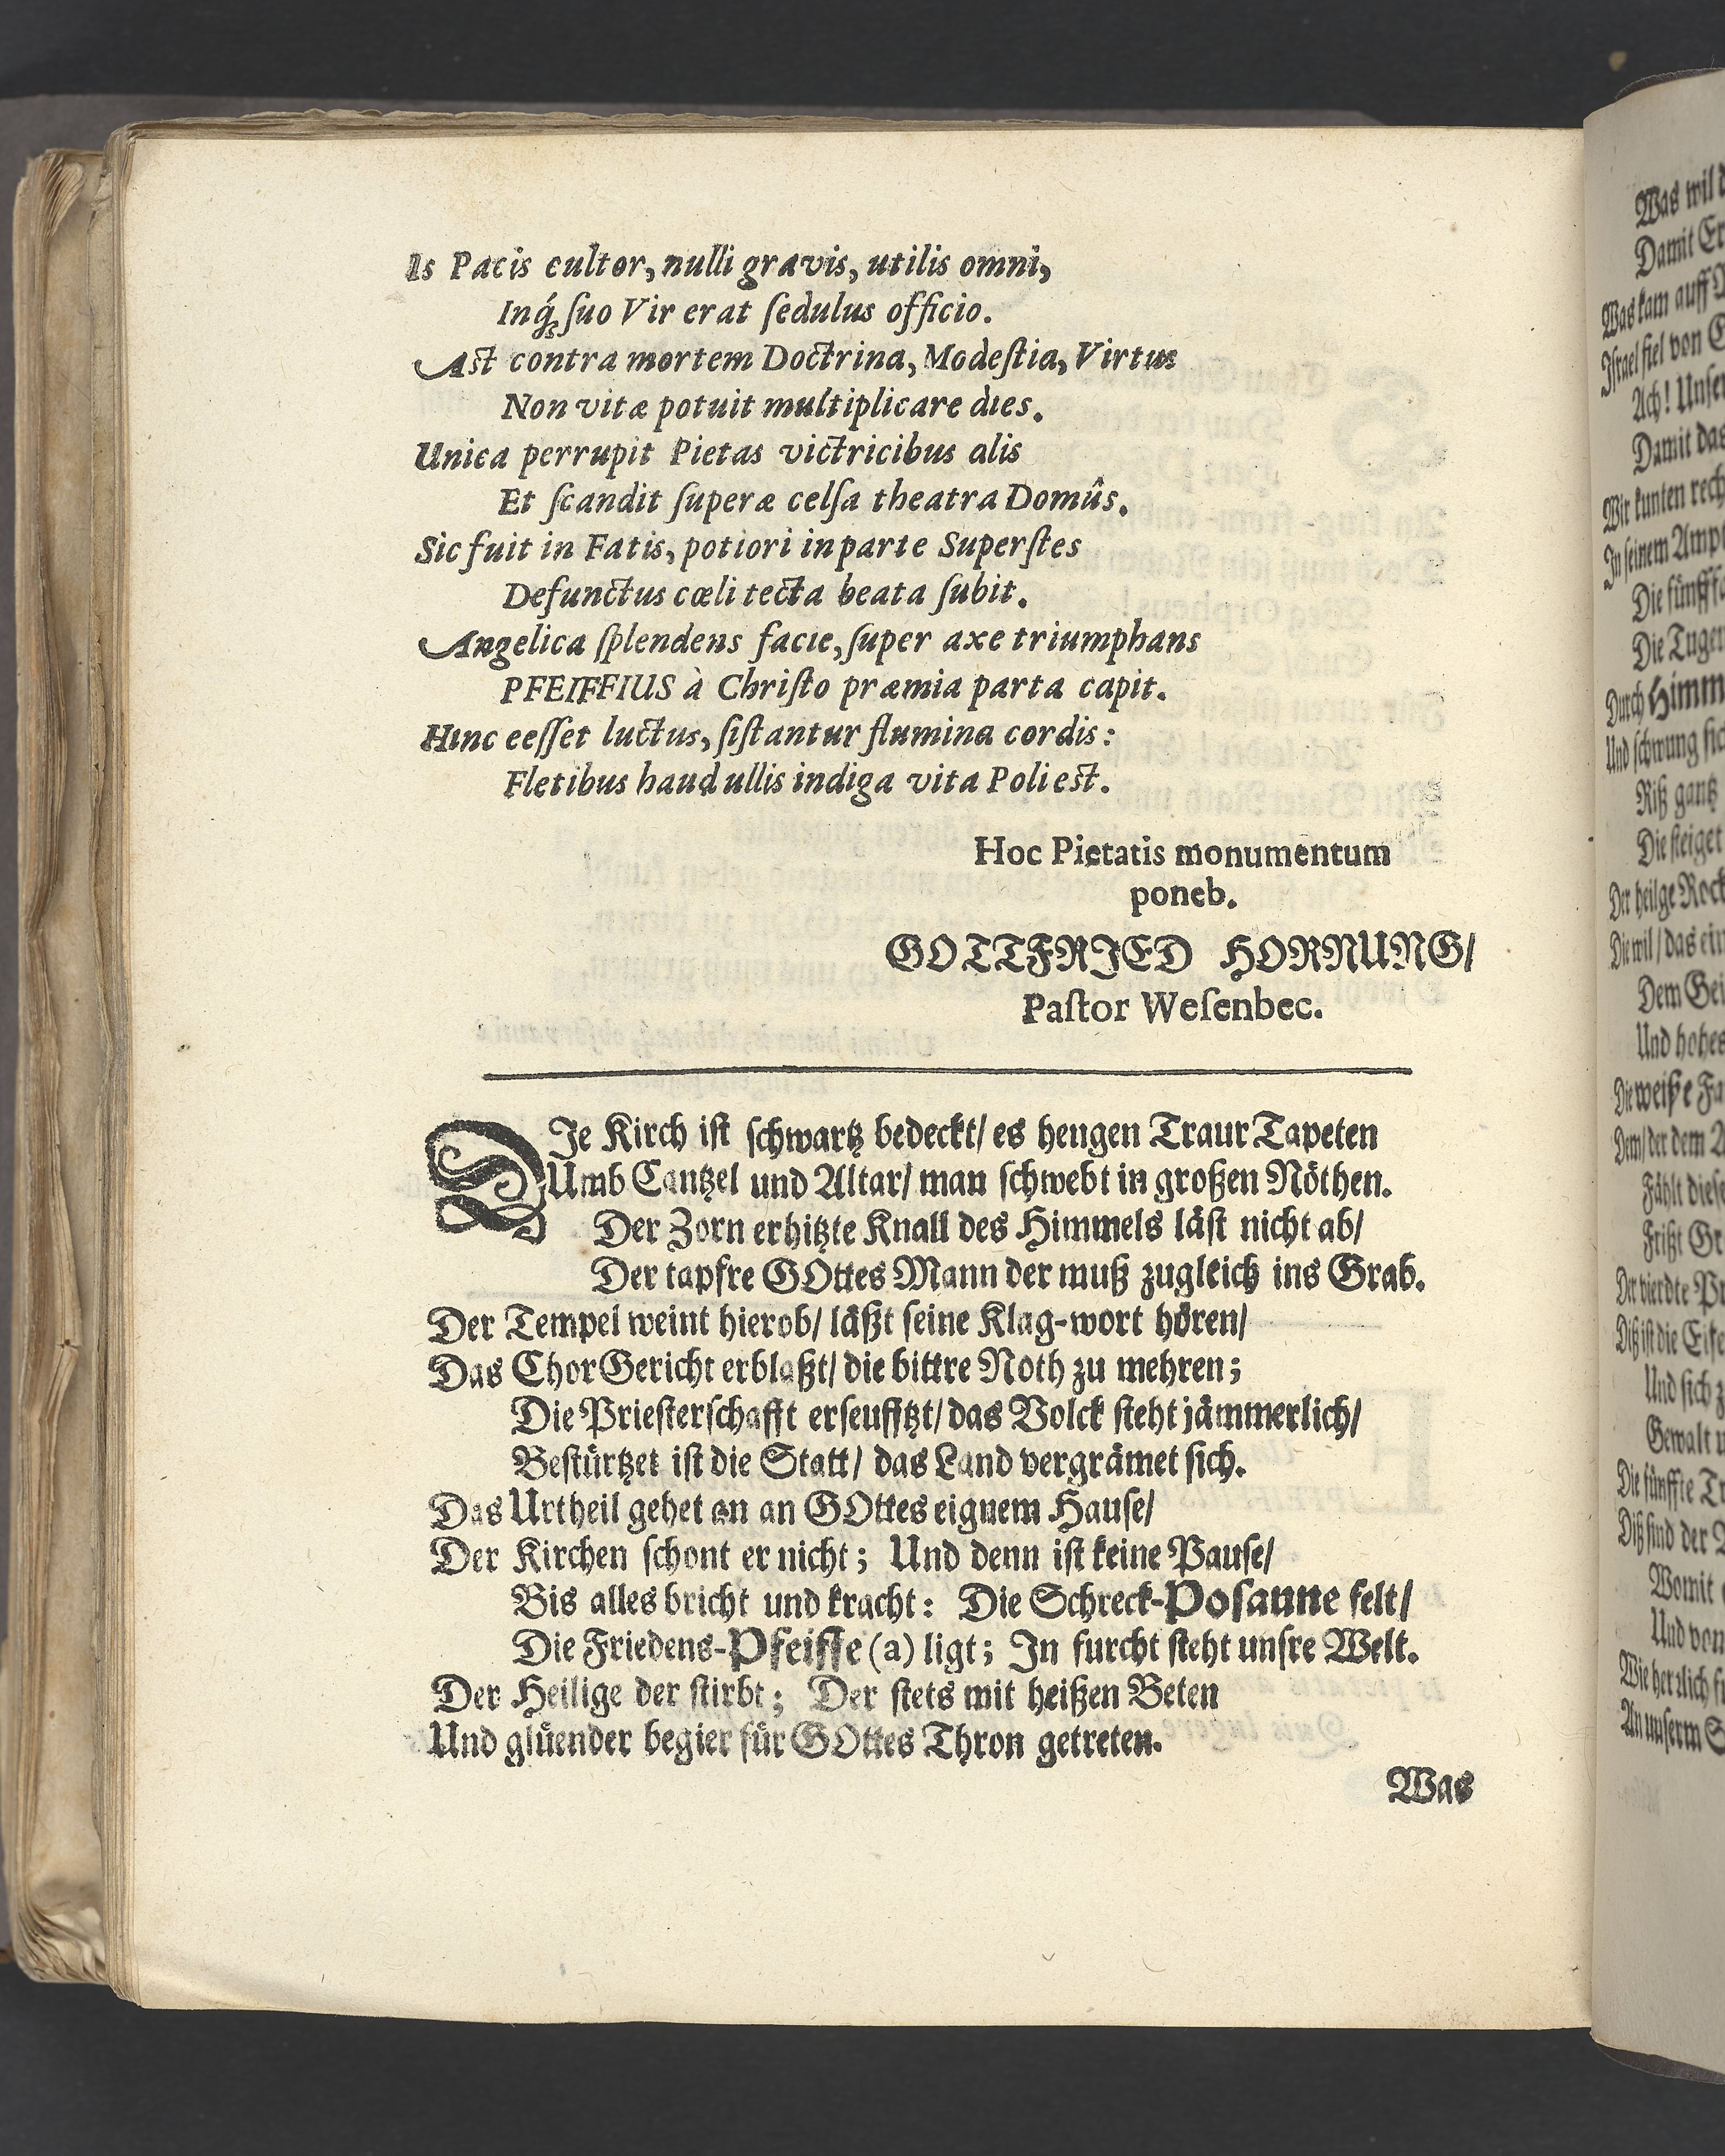 Is Pacis cultor, nulli gravis, utilis omni,
Inq́; ſuo Vir erat ſedulus officio.
Aſt contra mortem Doctrina, Modeſtia, Virtus
Non vitæ potuit multiplicare dies.
Unica perrupit Pietas victricibus alis
Et ſcandit ſuperæ celſa theatra Domûs.
Sic fuit in Fatis, potiori in parte Superſtes
Defunctus cœli tecta beata ſubit.
Angelica ſplendens facie, ſuper axe triumphans
PFEIFFIUS à Chriſto præmia parta capit.
Hinc ceſſet luctus, ſiſtantur flumina cordis:
Fletibus haud ullis indiga vita Poli eſt.
Hoc Pietatis monumentum
poneb.
GOTTFRIED HORNUNG/
Paſtor Weſenbec.
DJe Kirch iſt ſchwartz bedeckt/ es hengen Traur Tapeten
Umb Cantzel und Altar/ man ſchwebt in großen Nöthen.
Der Zorn erhitzte Knall des Himmels läſt nicht ab/
Der tapfre GOttes Mann der muß zugleich ins Grab.
Der Tempel weint hierob/ läßt ſeine Klag-wort hören/
Das Chor Gericht erblaßt/ die bittre Noth zu mehren;
Die Prieſterſchafft erſeufftzt/ das Volck ſteht jämmerlich/
Beſtürtzet iſt die Statt/ das Land vergrämet ſich.
Das Urtheil gehet an an GOttes eignem Hauſe/
Der Kirchen ſchont er nicht; Und denn iſt keine Pauſe/
Bis alles bricht und kracht: Die Schreck-Poſaune felt/
Die Friedens-Pfeiffe (a) ligt; In furcht ſteht unſre Welt.
Der Heilige der ſtirbt; Der ſtets mit heißen Beten
Und glüender begier für GOttes Thron getreten.
Was
Was wil
Damit
Was kam auff
Iſrael fiel von
Ach! Unſer
Damit das
Wir kunten
In ſeinem
Die
Die
Durch
Und ſchwung
Riß gantz
Die ſteiget
Der heilge Rock
Die wil/ das ein
Dem
Und hohes
Die weiße
Dem/ der dem
Fählt dieſe
Frißt
Der vierdte
Diß iſt die
Und ſich
Gewalt
Die fünffte
Diß ſind der
Womit
Und von
Wie herzlich
An unſerm